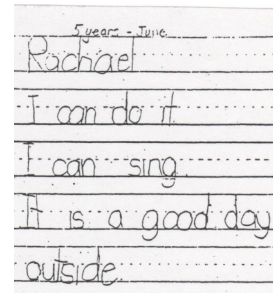 5 years - June
Rachael
I can do it
I can sing.
It is a good day
outside.